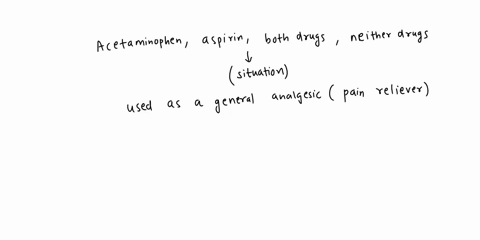 Acetaminophen, aspirin, both drugs, neither drugs
(situation)
used as a general analgesic (pain reliever)